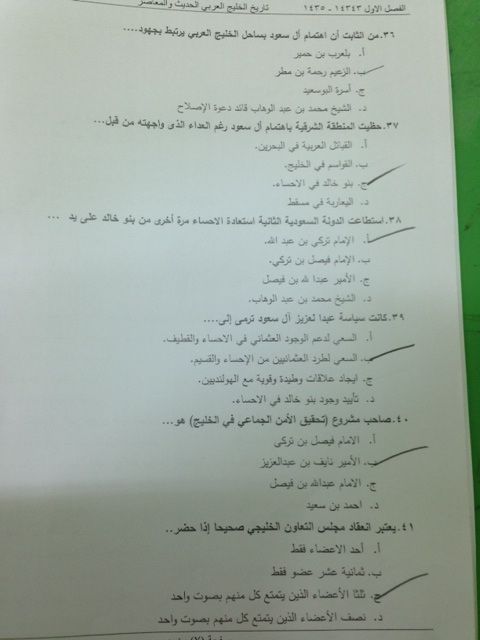 الفصل الاول ١٤٣٤٣ - ١٤٣٥ تاريخ الخليج العربي الحديث والمعاصر
٣٦.من الثابت أن اهتمام آل سعود بساحل الخليج العربي يرتبط بجهود....
أ. بلعرب بن حمير
ب. الزعيم رحمة بن مطر
ج. أسرة البوسعيد
د. الشيخ محمد بن عبد الوهاب قائد دعوة الإصلاح
٣٧.حظيت المنطقة الشرقية باهتمام آل سعود رغم العداء الذى واجهته من قبل...
أ. القبائل العربية في البحرين.
ب. القواسم في الخليج.
ج. بنو خالد في الاحساء.
د. اليعاربة في مسقط
٣٨.استطاعت الدولة السعودية الثانية استعادة الاحساء مرة أخرى من بنو خالد على يد ...
أ. الإمام تركي بن عبد الله.
ب. الإمام فيصل بن تركي.
ج. الأمير عبدا لله بن فيصل
د. الشيخ محمد بن عبد الوهاب.
٣٩.كانت سياسة عبدا لعزيز آل سعود ترمى إلى....
أ. السعي لدعم الوجود العثماني في الاحساء والقطيف.
ب. السعي لطرد العثمانيين من الإحساء والقسيم.
ج. ايجاد علاقات وطيدة وقوية مع الهولنديين.
د. تأييد وجود بنو خالد في الاحساء.
٤٠.صاحب مشروع (تحقيق الأمن الجماعي في الخليج) هو...
أ. الامام فيصل بن تركى
ب. الأمير نايف بن عبدالعزيز
ج. الامام عبدالله بن فيصل
د. احمد بن سعيد
٤١.يعتبر انعقاد مجلس التعاون الخليجي صحيحا إذا حضر..
أ. أحد الاعضاء فقط
ب. ثمانية عشر عضو فقط
ج. ثلثا الأعضاء الذين يتمتع كل منهم بصوت واحد
د. نصف الأعضاء الذين يتمتع كل منهم بصوت واحد